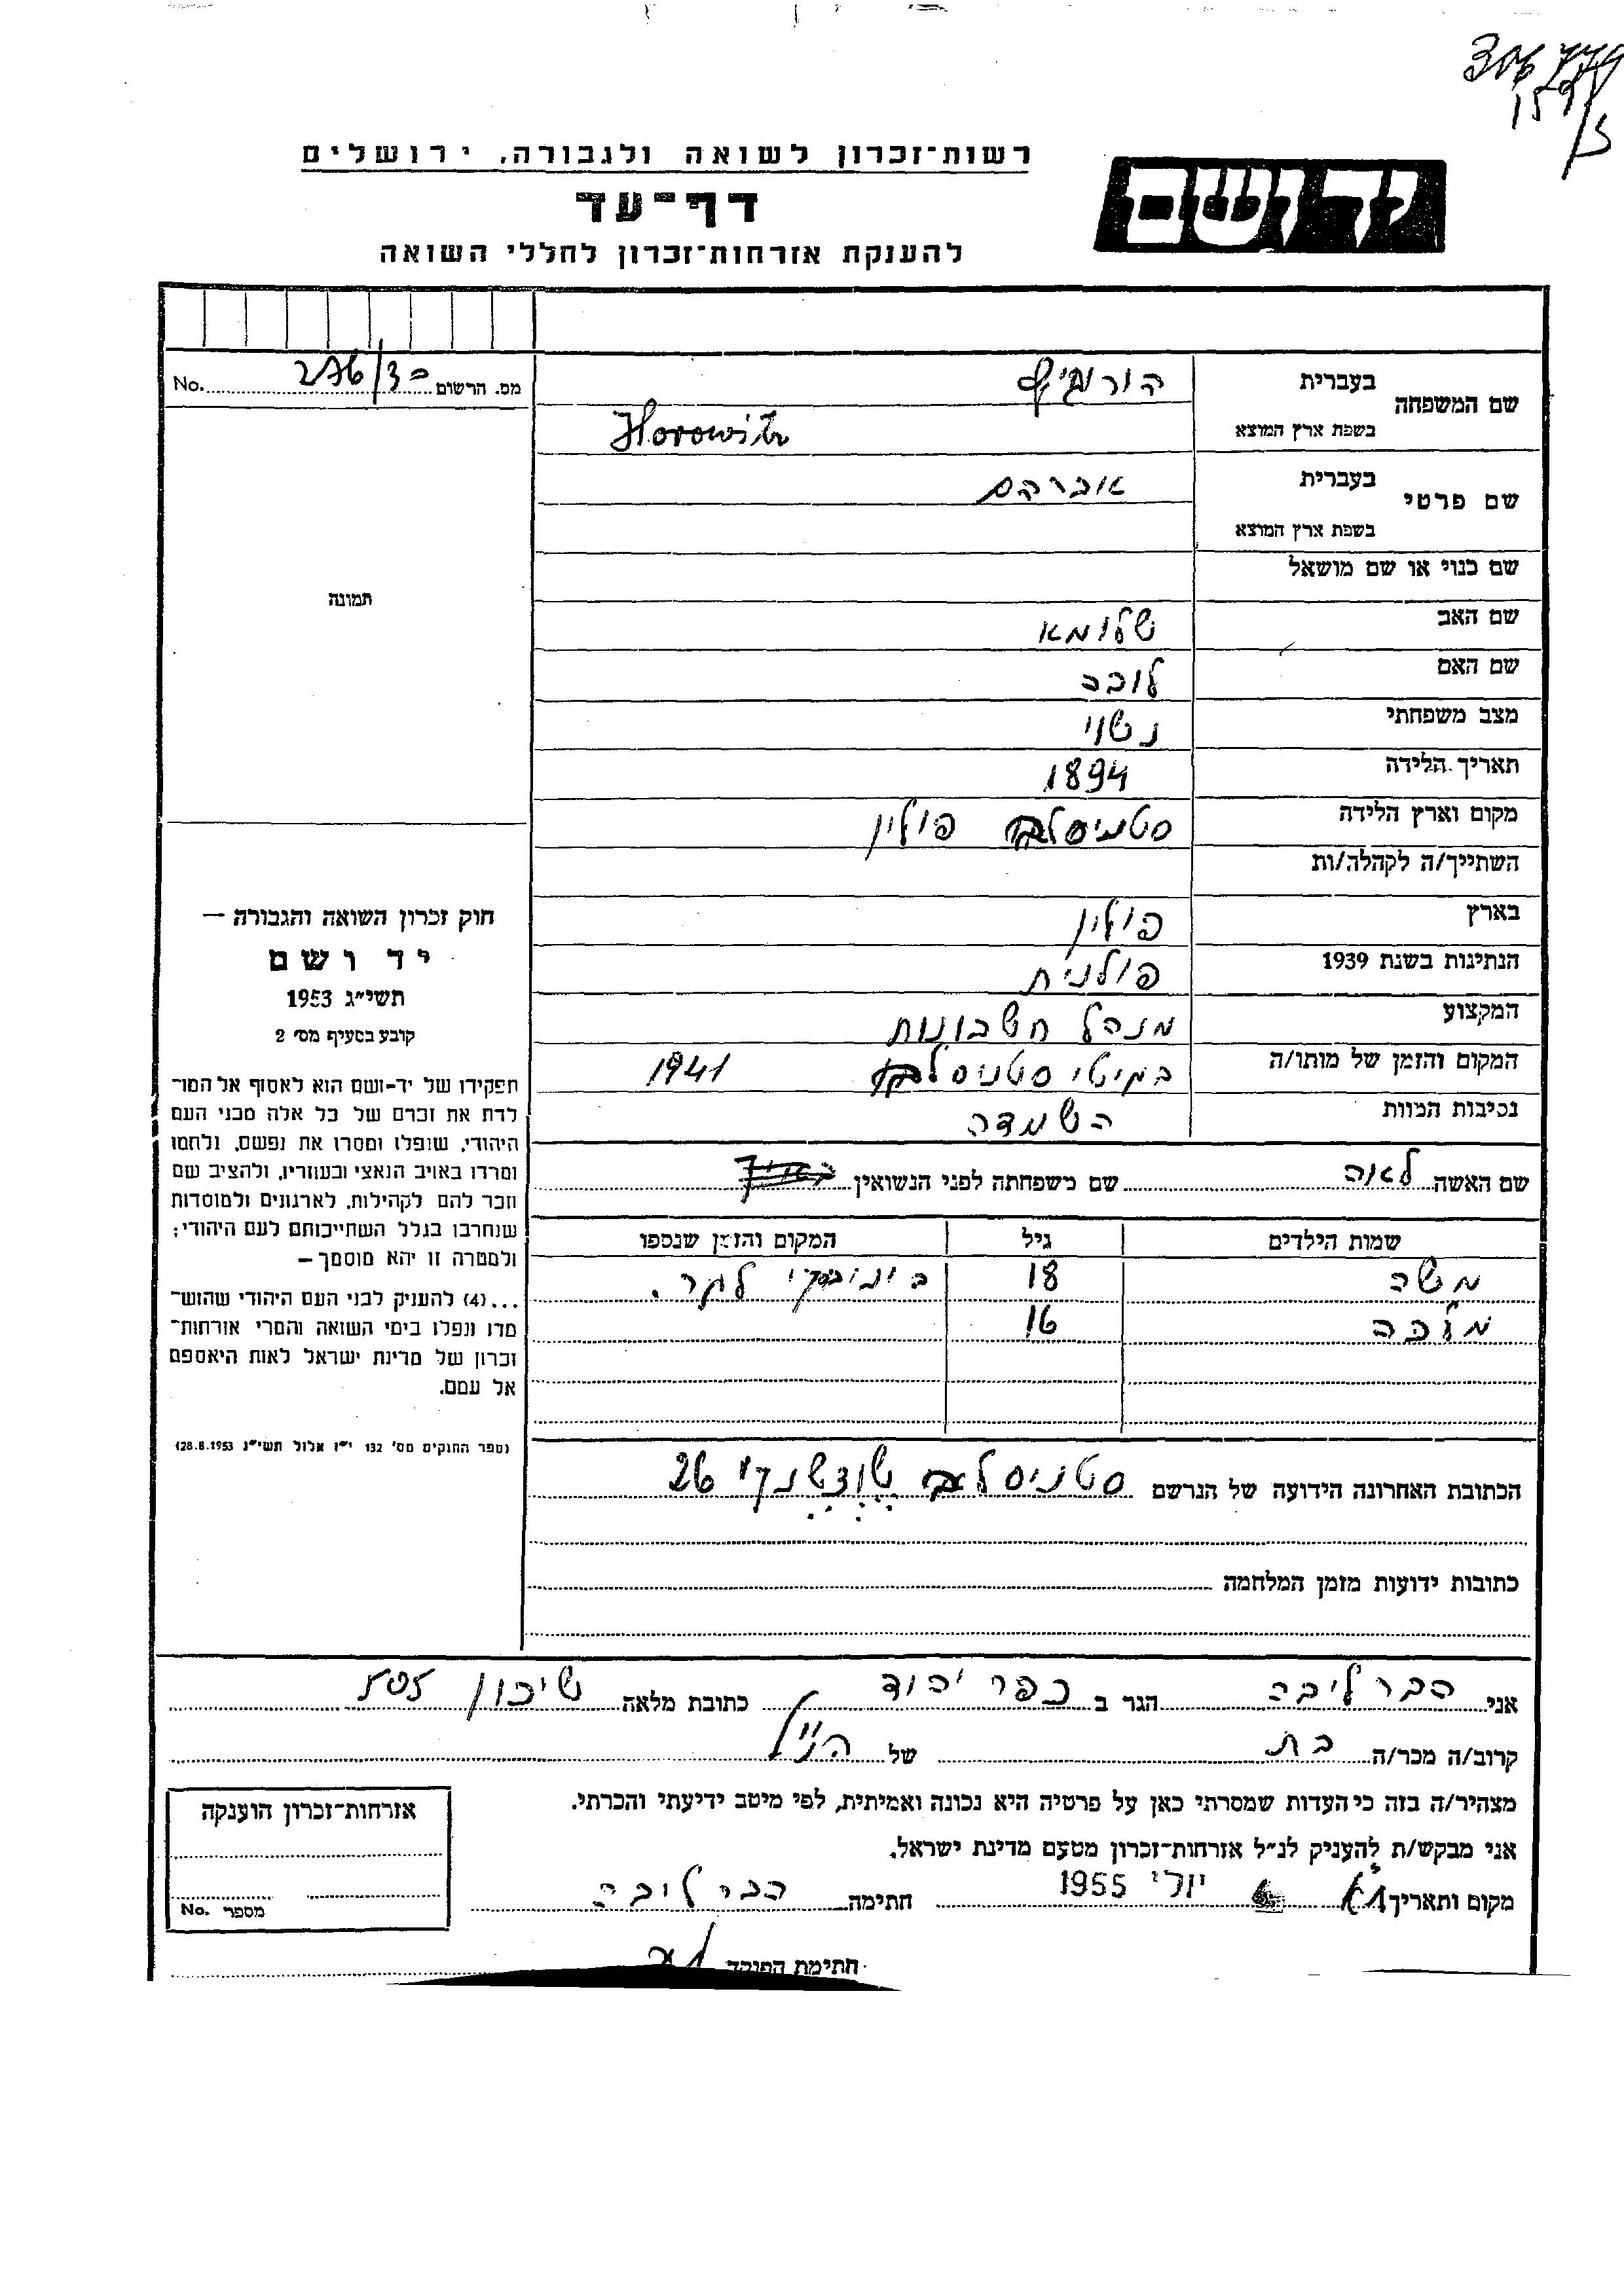 רשות־זכרון לשואה ולגבורה, ירושלים
יד ושם
דף־עד
להענקת אזרחות־זכרון לחללי השואה
מס. הרשום No. 276/30
שם המשפחה בעברית הורוביץ
בשפת ארץ המוצא Horowitz
שם פרטי בעברית אברהם
בשפת ארץ המוצא
שם כנוי או שם מושאל
שם האב שלומא
שם האם לובה
מצב משפחתי נשוי
תאריך הלידה 1894
מקום וארץ הלידה סטניסלב פולין
השתייך/ה לקהלה/ות
בארץ פולין
הנתינות בשנת 1939 פולנית
המקצוע מנהל חשבונות
המקום והזמן של מותו/ה סטניסלב 1941
נסיבות המוות השמדה
תמונה
חוק זכרון השואה והגבורה —
יד ושם
תשי״ג 1953
קובע בסעיף מס׳ 2
תפקידו של יד-ושם הוא לאסוף אל המו־
לדת את זכרם של כל אלה מבני העם
היהודי, שנפלו ומסרו את נפשם, נלחמו
ומרדו באויב הנאצי ובעוזריו, ולהציב שם
וזכר להם לקהילות, לארגונים ולמוסדות
שנחרבו בגלל השתייכותם לעם היהודי;
ולמטרה זו יהא מוסמך —
...(4) להעניק לבני העם היהודי שהוש־
מדו ונפלו בימי השואה והמרי אזרחות־
זכרון של מדינת ישראל לאות היאספם
אל עמם.
(ספר החוקים מס׳ 132 י״ז אלול תשי״ג 28.8.1953)
שם האשה לאה שם משפחתה לפני הנשואין
שמות הילדים גיל המקום והזמן שנספו
משה 18
מלכה 16
הכתובת האחרונה הידועה של הנרשם סטניסלב 26
כתובות ידועות מזמן המלחמה
אני הבר ליבה הגר ב כפר יהוד כתובת מלאה שיכון 505
קרוב/ה מכר/ה בת של הנ״ל
מצהיר/ה בזה כי העדות שמסרתי כאן על פרטיה היא נכונה ואמיתית, לפי מיטב ידיעתי והכרתי.
אני מבקש/ת להעניק לנ״ל אזרחות־זכרון מטעם מדינת ישראל.
מקום ותאריך יולי 1955 חתימה הבר ליבה
חתימת הפוקד
אזרחות־זכרון הוענקה
מספר No.